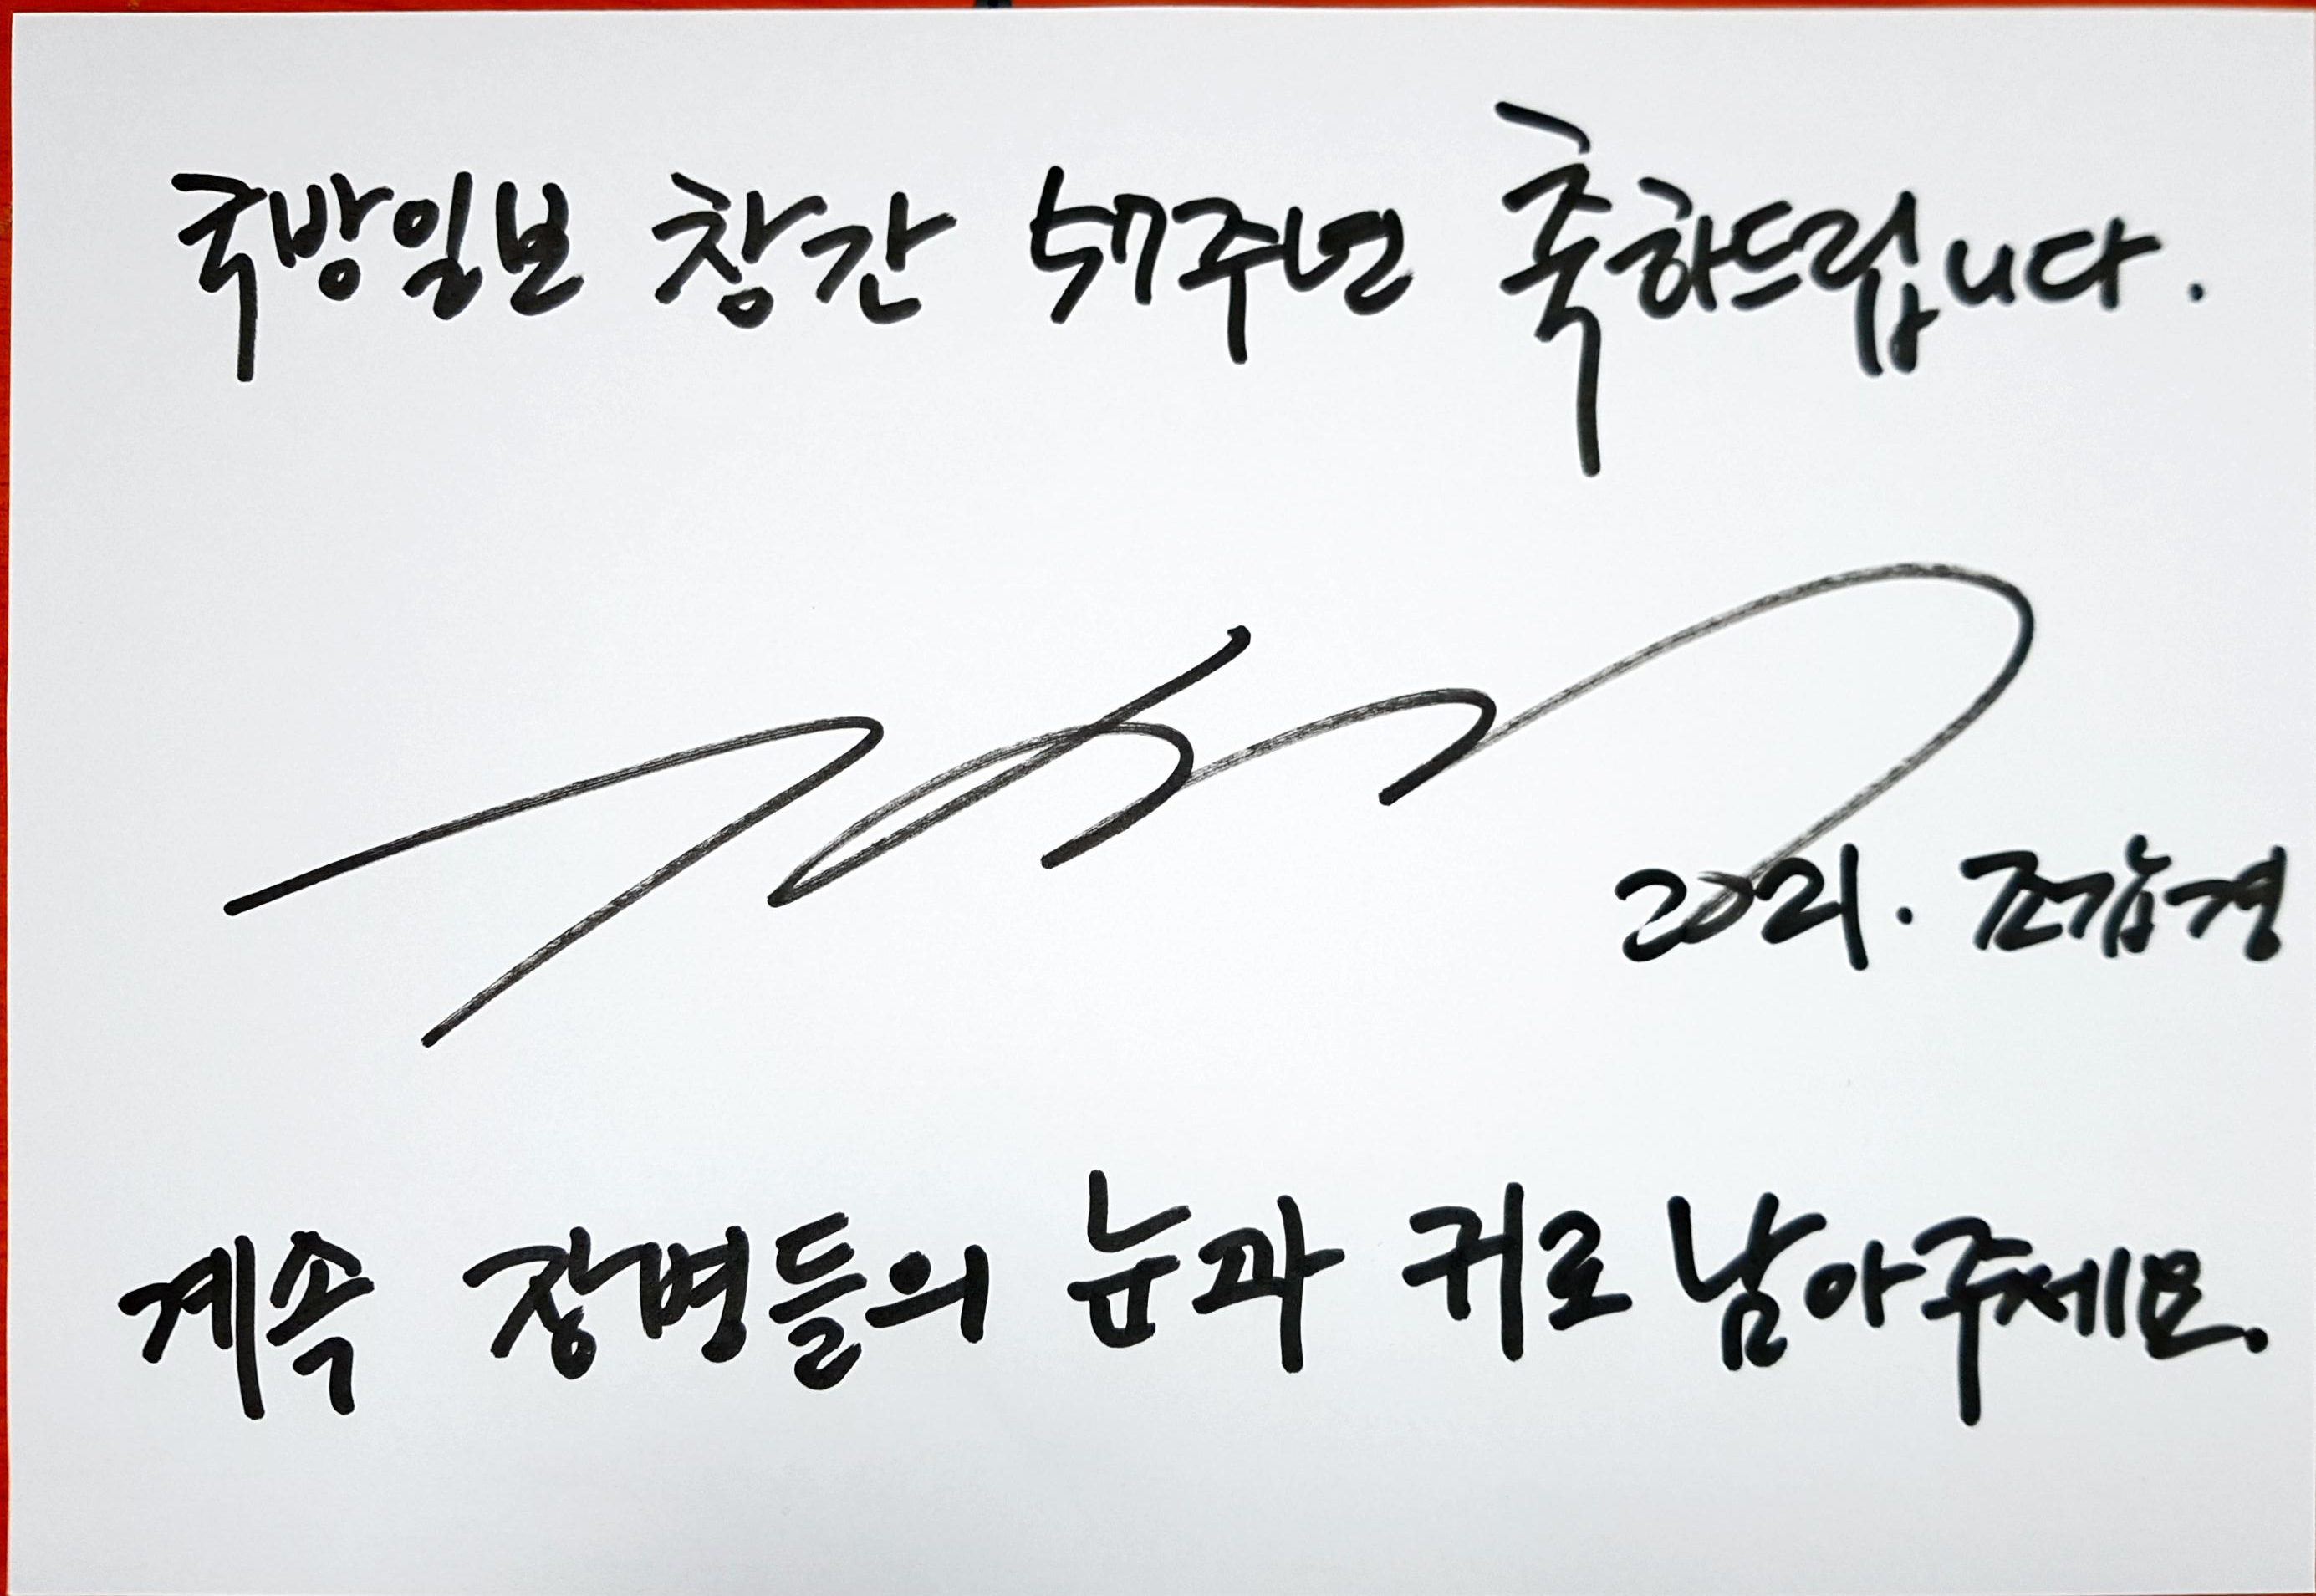 국방일보 창간 57주년 축하드립니다.
2021. 조갑경
계속 장병들의 눈과 귀로 남아주세요.